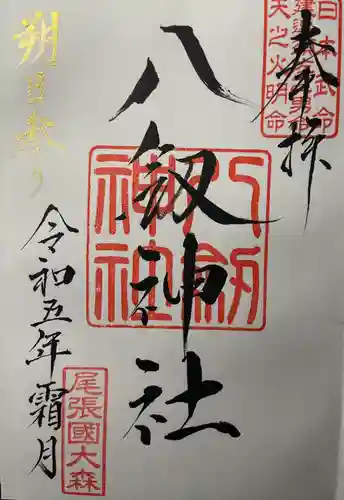 奉拝
日本武命
天之火明命
八剱神社
八剱
神社
朔日祭り
令和五年霜月
尾張國大森